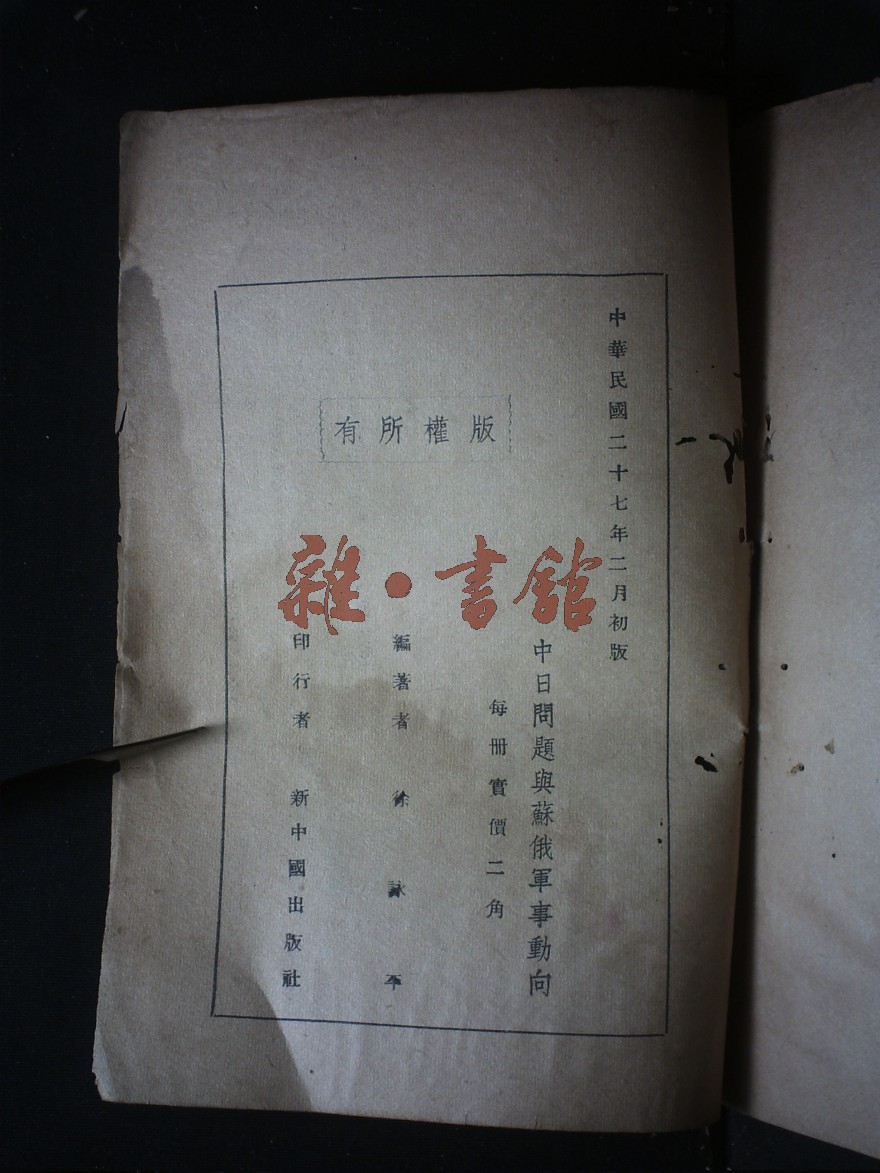 中華民國二十七年二月初版
中日問題與蘇俄軍事動向
每冊實價二角
編著者 徐詠平
印行者 新中國出版社
有所權版
雜·書館